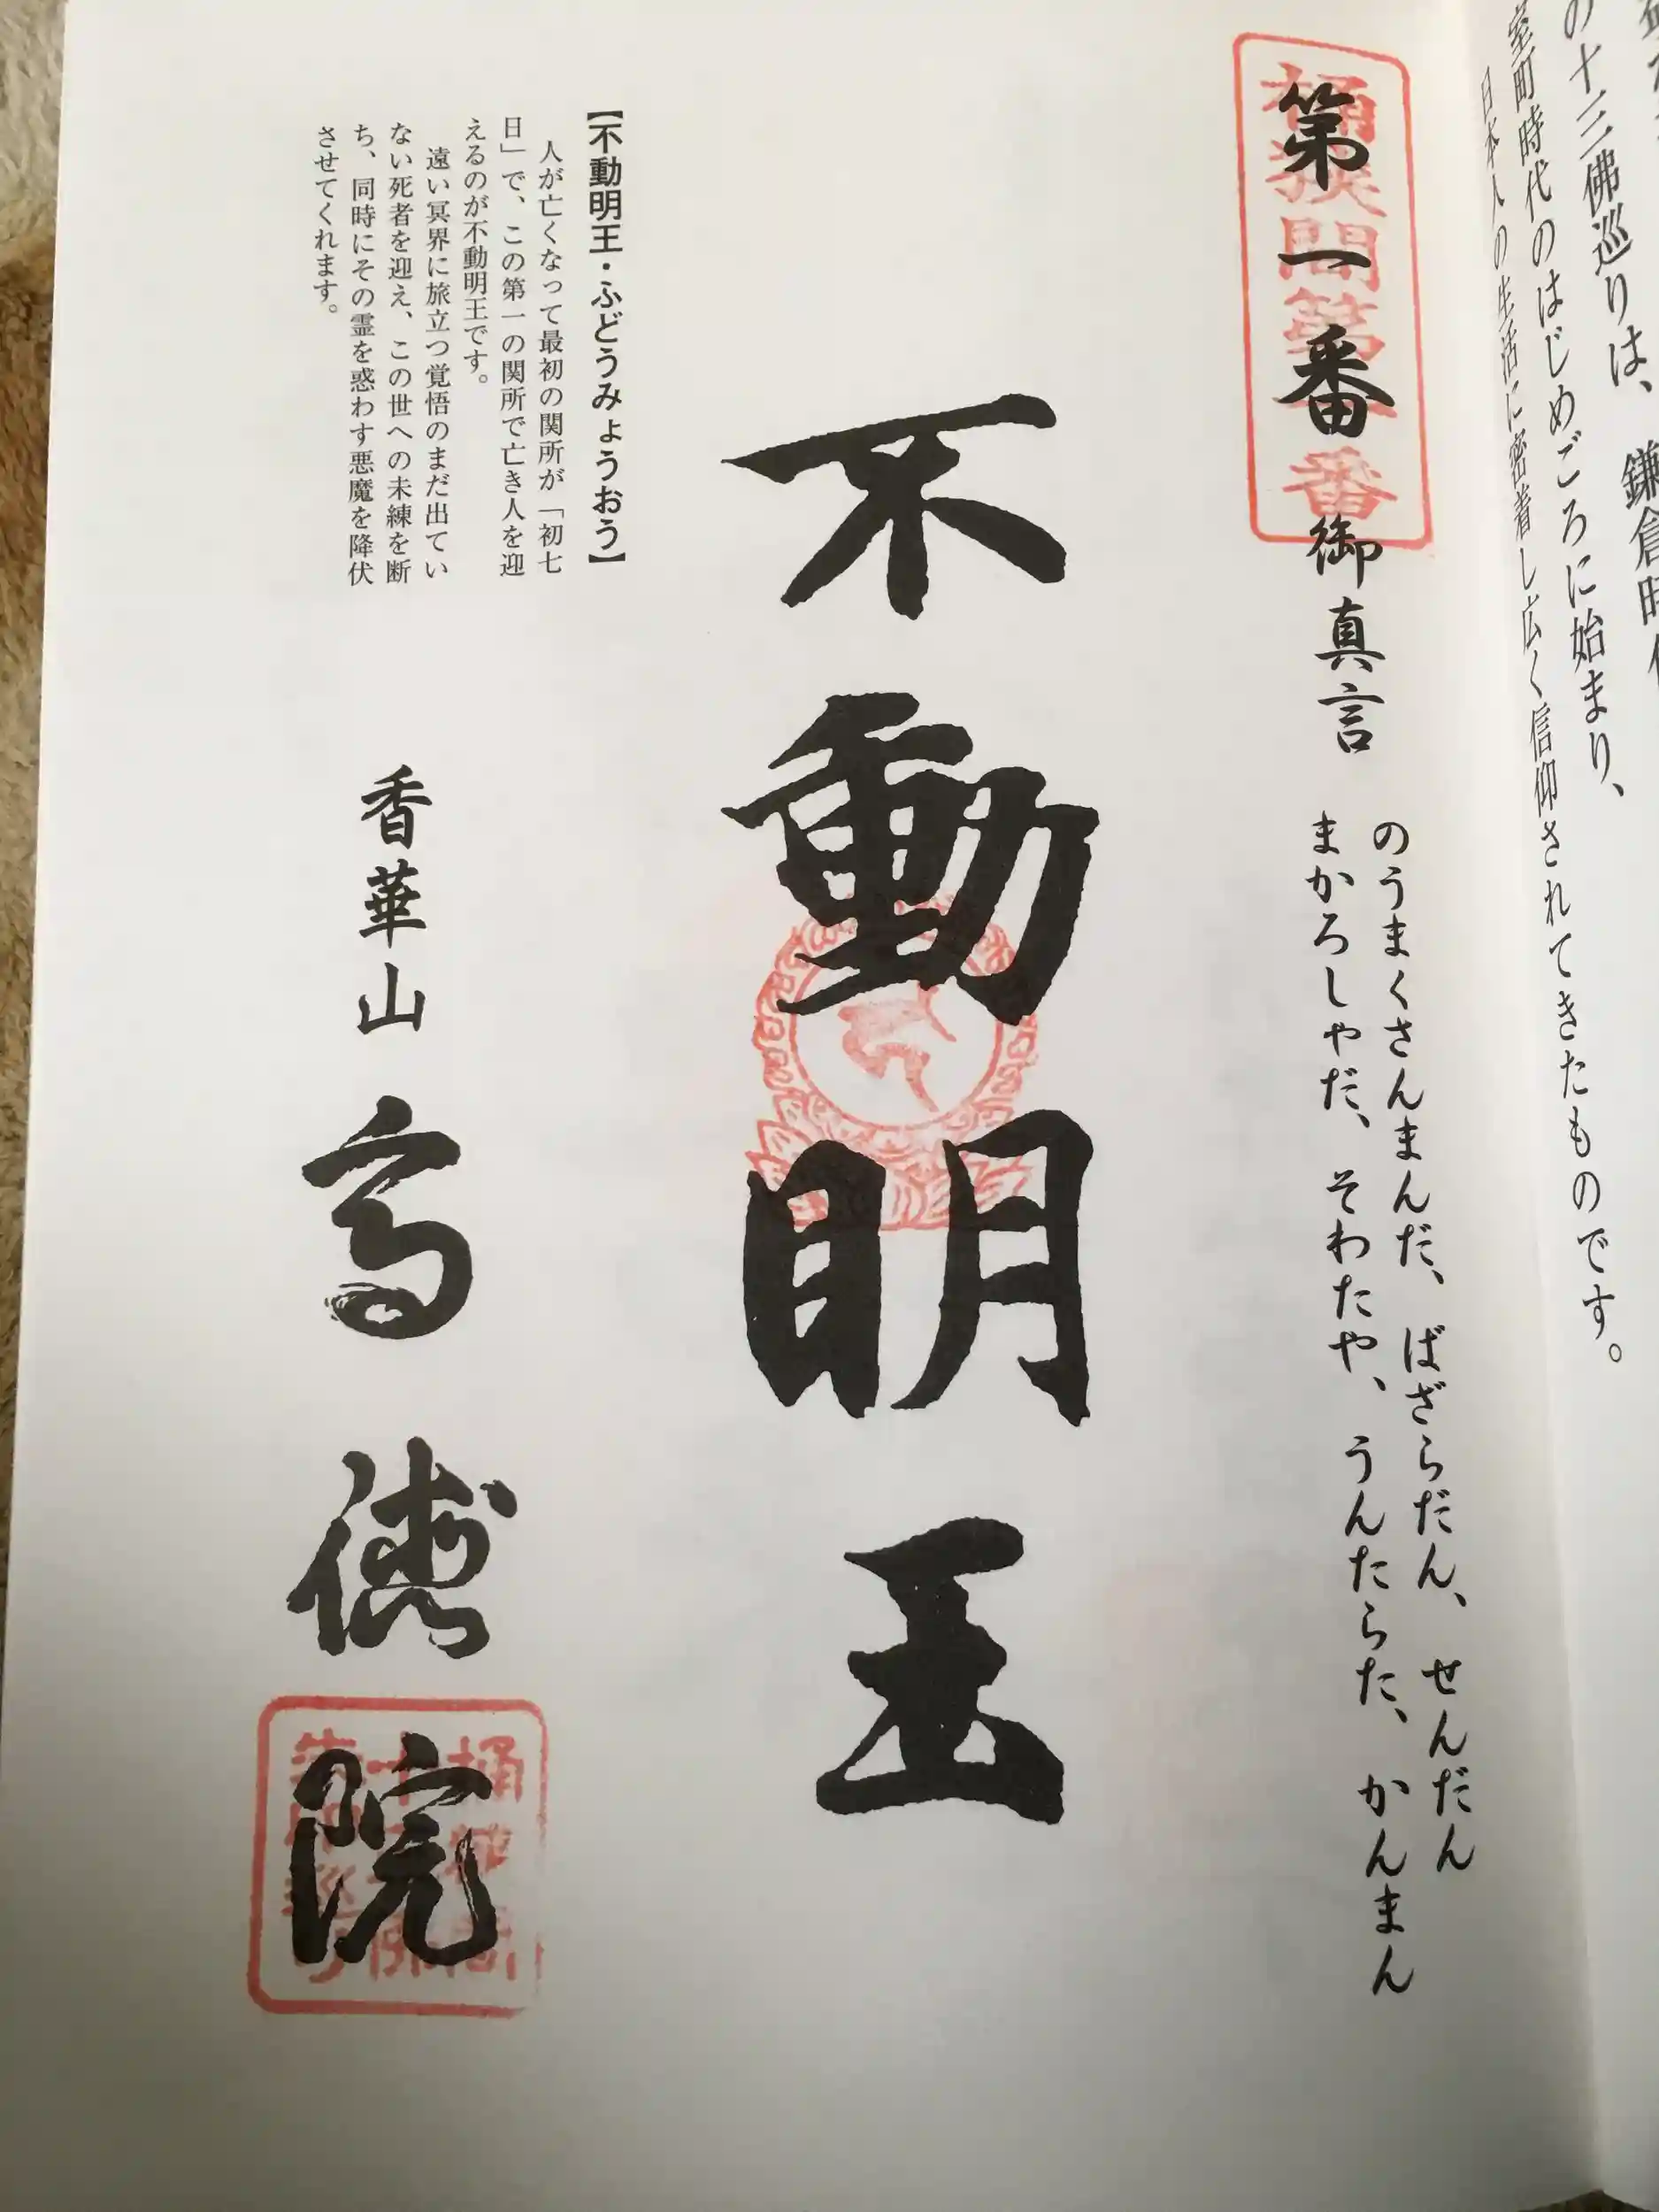 の十三佛巡りは、鎌倉時
室町時代のはじめごろに始まり、
日本人の生活に密着し広く信仰されてきたものです。
桶狭間第一番
第一番
御真言
のうまくさんまんだ、ばざらだん、せんだん
まかろしゃだ、そわたや、うんたらた、かんまん
不動明王
【不動明王・ふどうみょうおう】
人が亡くなって最初の関所が「初七
日」で、この第一の関所で亡き人を迎
えるのが不動明王です。
遠い冥界に旅立つ覚悟のまだ出てい
ない死者を迎え、この世への未練を断
ち、同時にその霊を惑わす悪魔を降伏
させてくれます。
香華山
高德院